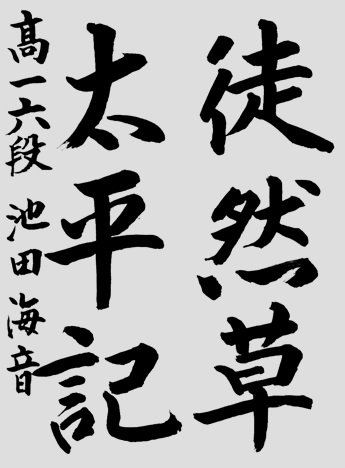 徒然草
太平記
高一六段 池田海音